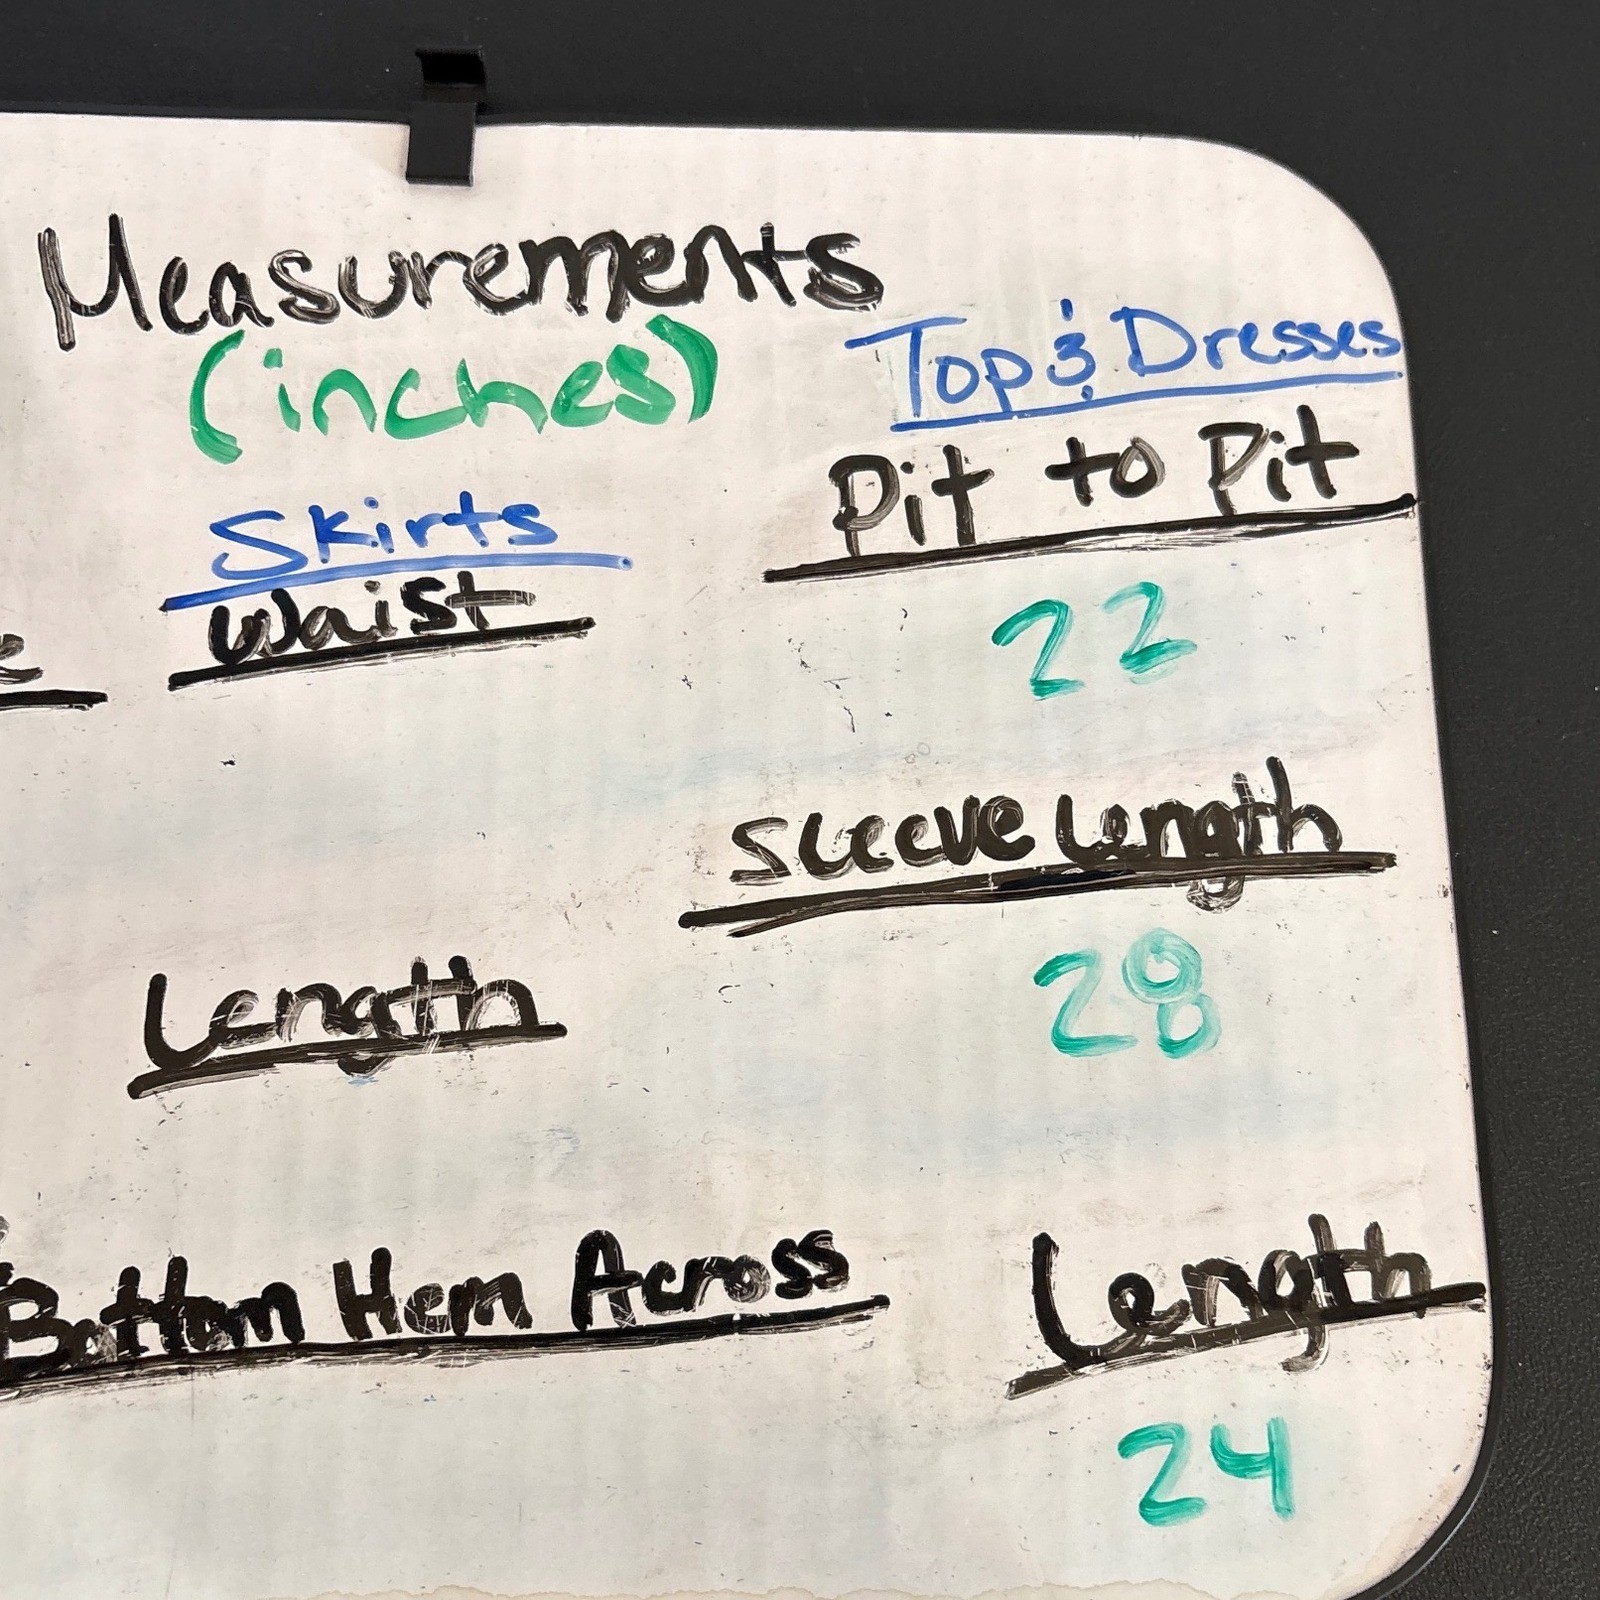 Measurements
(inches)
Top & Dresses
Pit to Pit
22
Sleeve Length
28
Length
24
Skirts
Waist
Length
Bottom Hem Across